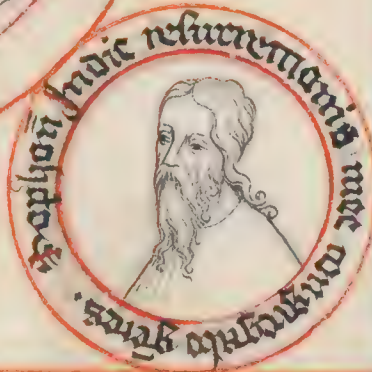 Sophon̄ Indie resurrexionis mee congregabo gētes.